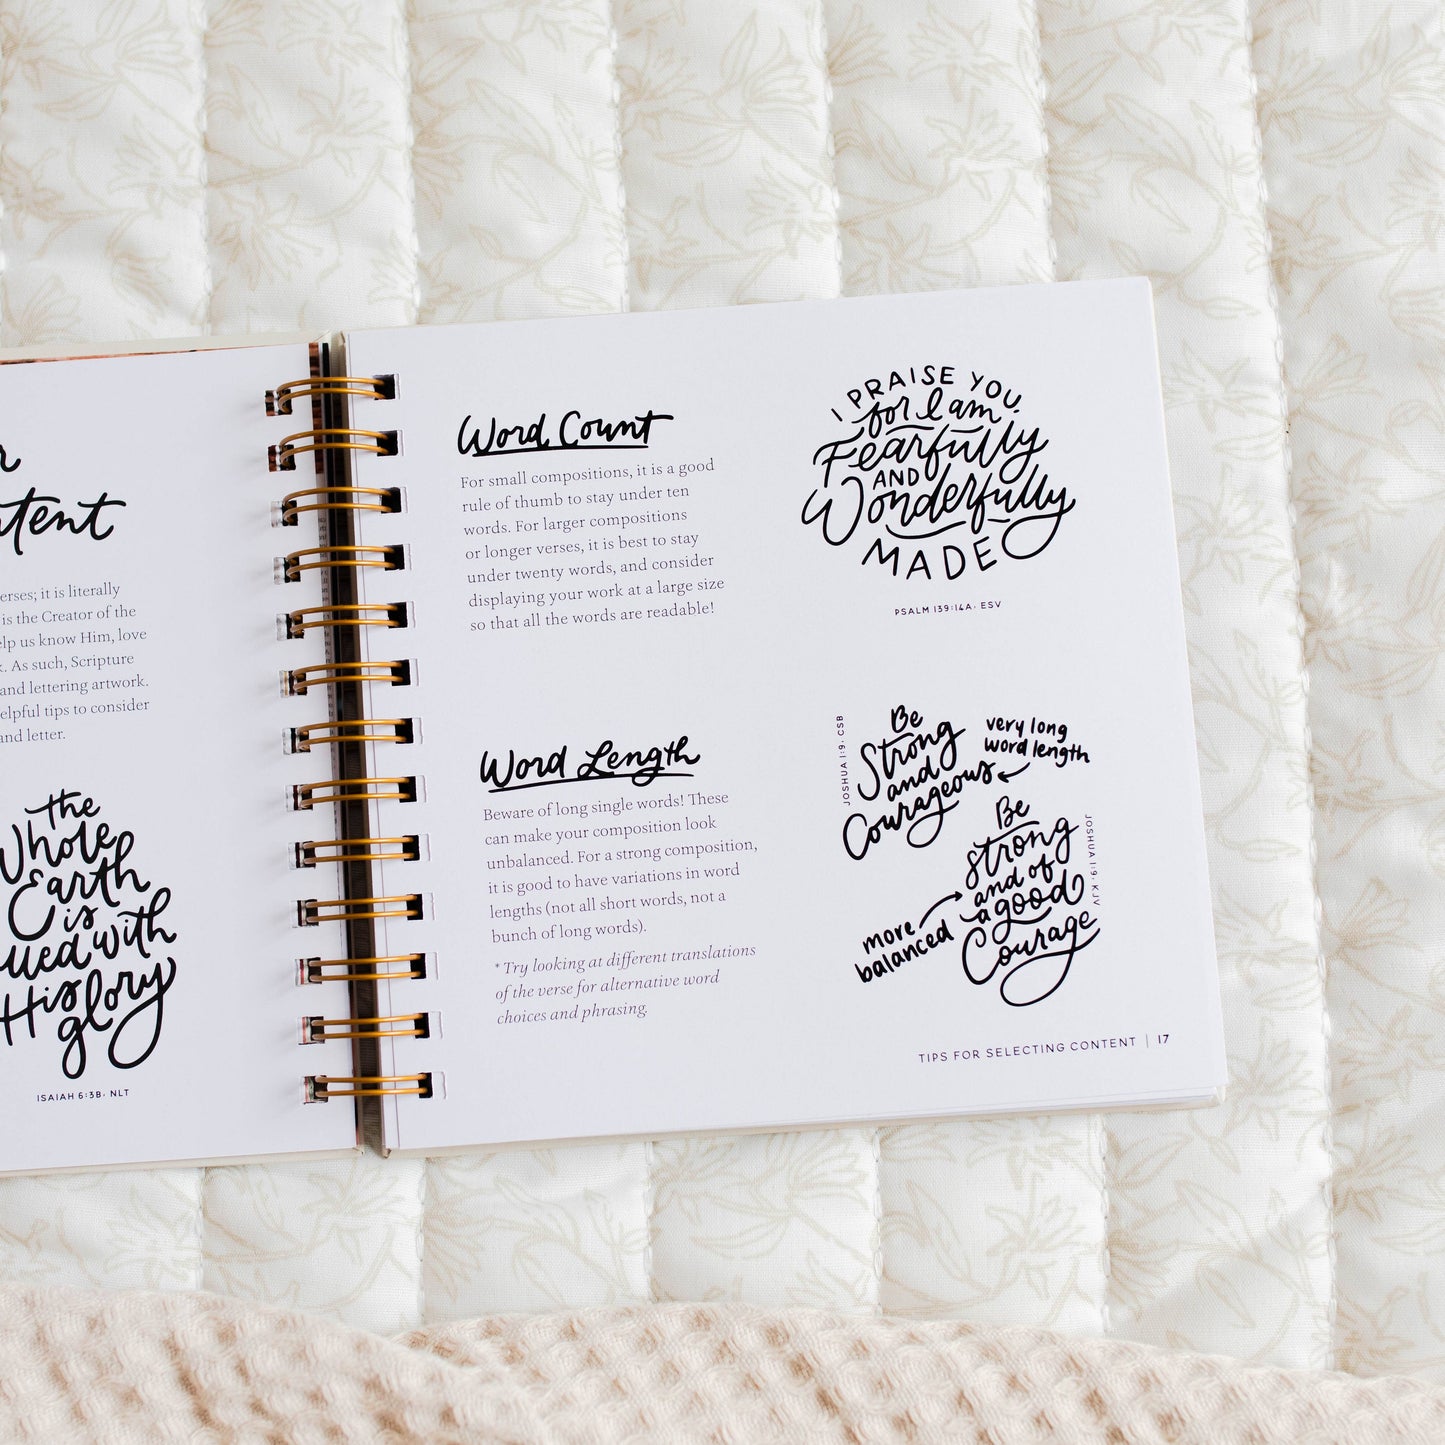 erses; it is literally
is the Creator of the
elp us know Him, love
. As such, Scripture
and lettering artwork.
elpful tips to consider
and letter.
the
Whole
Earth
is
with
His
glory
ISAIAH 6:3B, NLT
Word Count
For small compositions, it is a good
rule of thumb to stay under ten
words. For larger compositions
or longer verses, it is best to stay
under twenty words, and consider
displaying your work at a large size
so that all the words are readable!
I PRAISE YOU
for I am
Fearfully
AND
Wonderfully
MADE
PSALM 139:14A, ESV
Word Length
Beware of long single words! These
can make your composition look
unbalanced. For a strong composition,
it is good to have variations in word
lengths (not all short words, not a
bunch of long words).
* Try looking at different translations
of the verse for alternative word
choices and phrasing.
JOSHUA 1:9, CSB
Be
Strong
and
Courageous
very long
word length
Be
strong
and of
a good
Courage
JOSHUA 1:9, KJV
more
balanced
TIPS FOR SELECTING CONTENT | 17